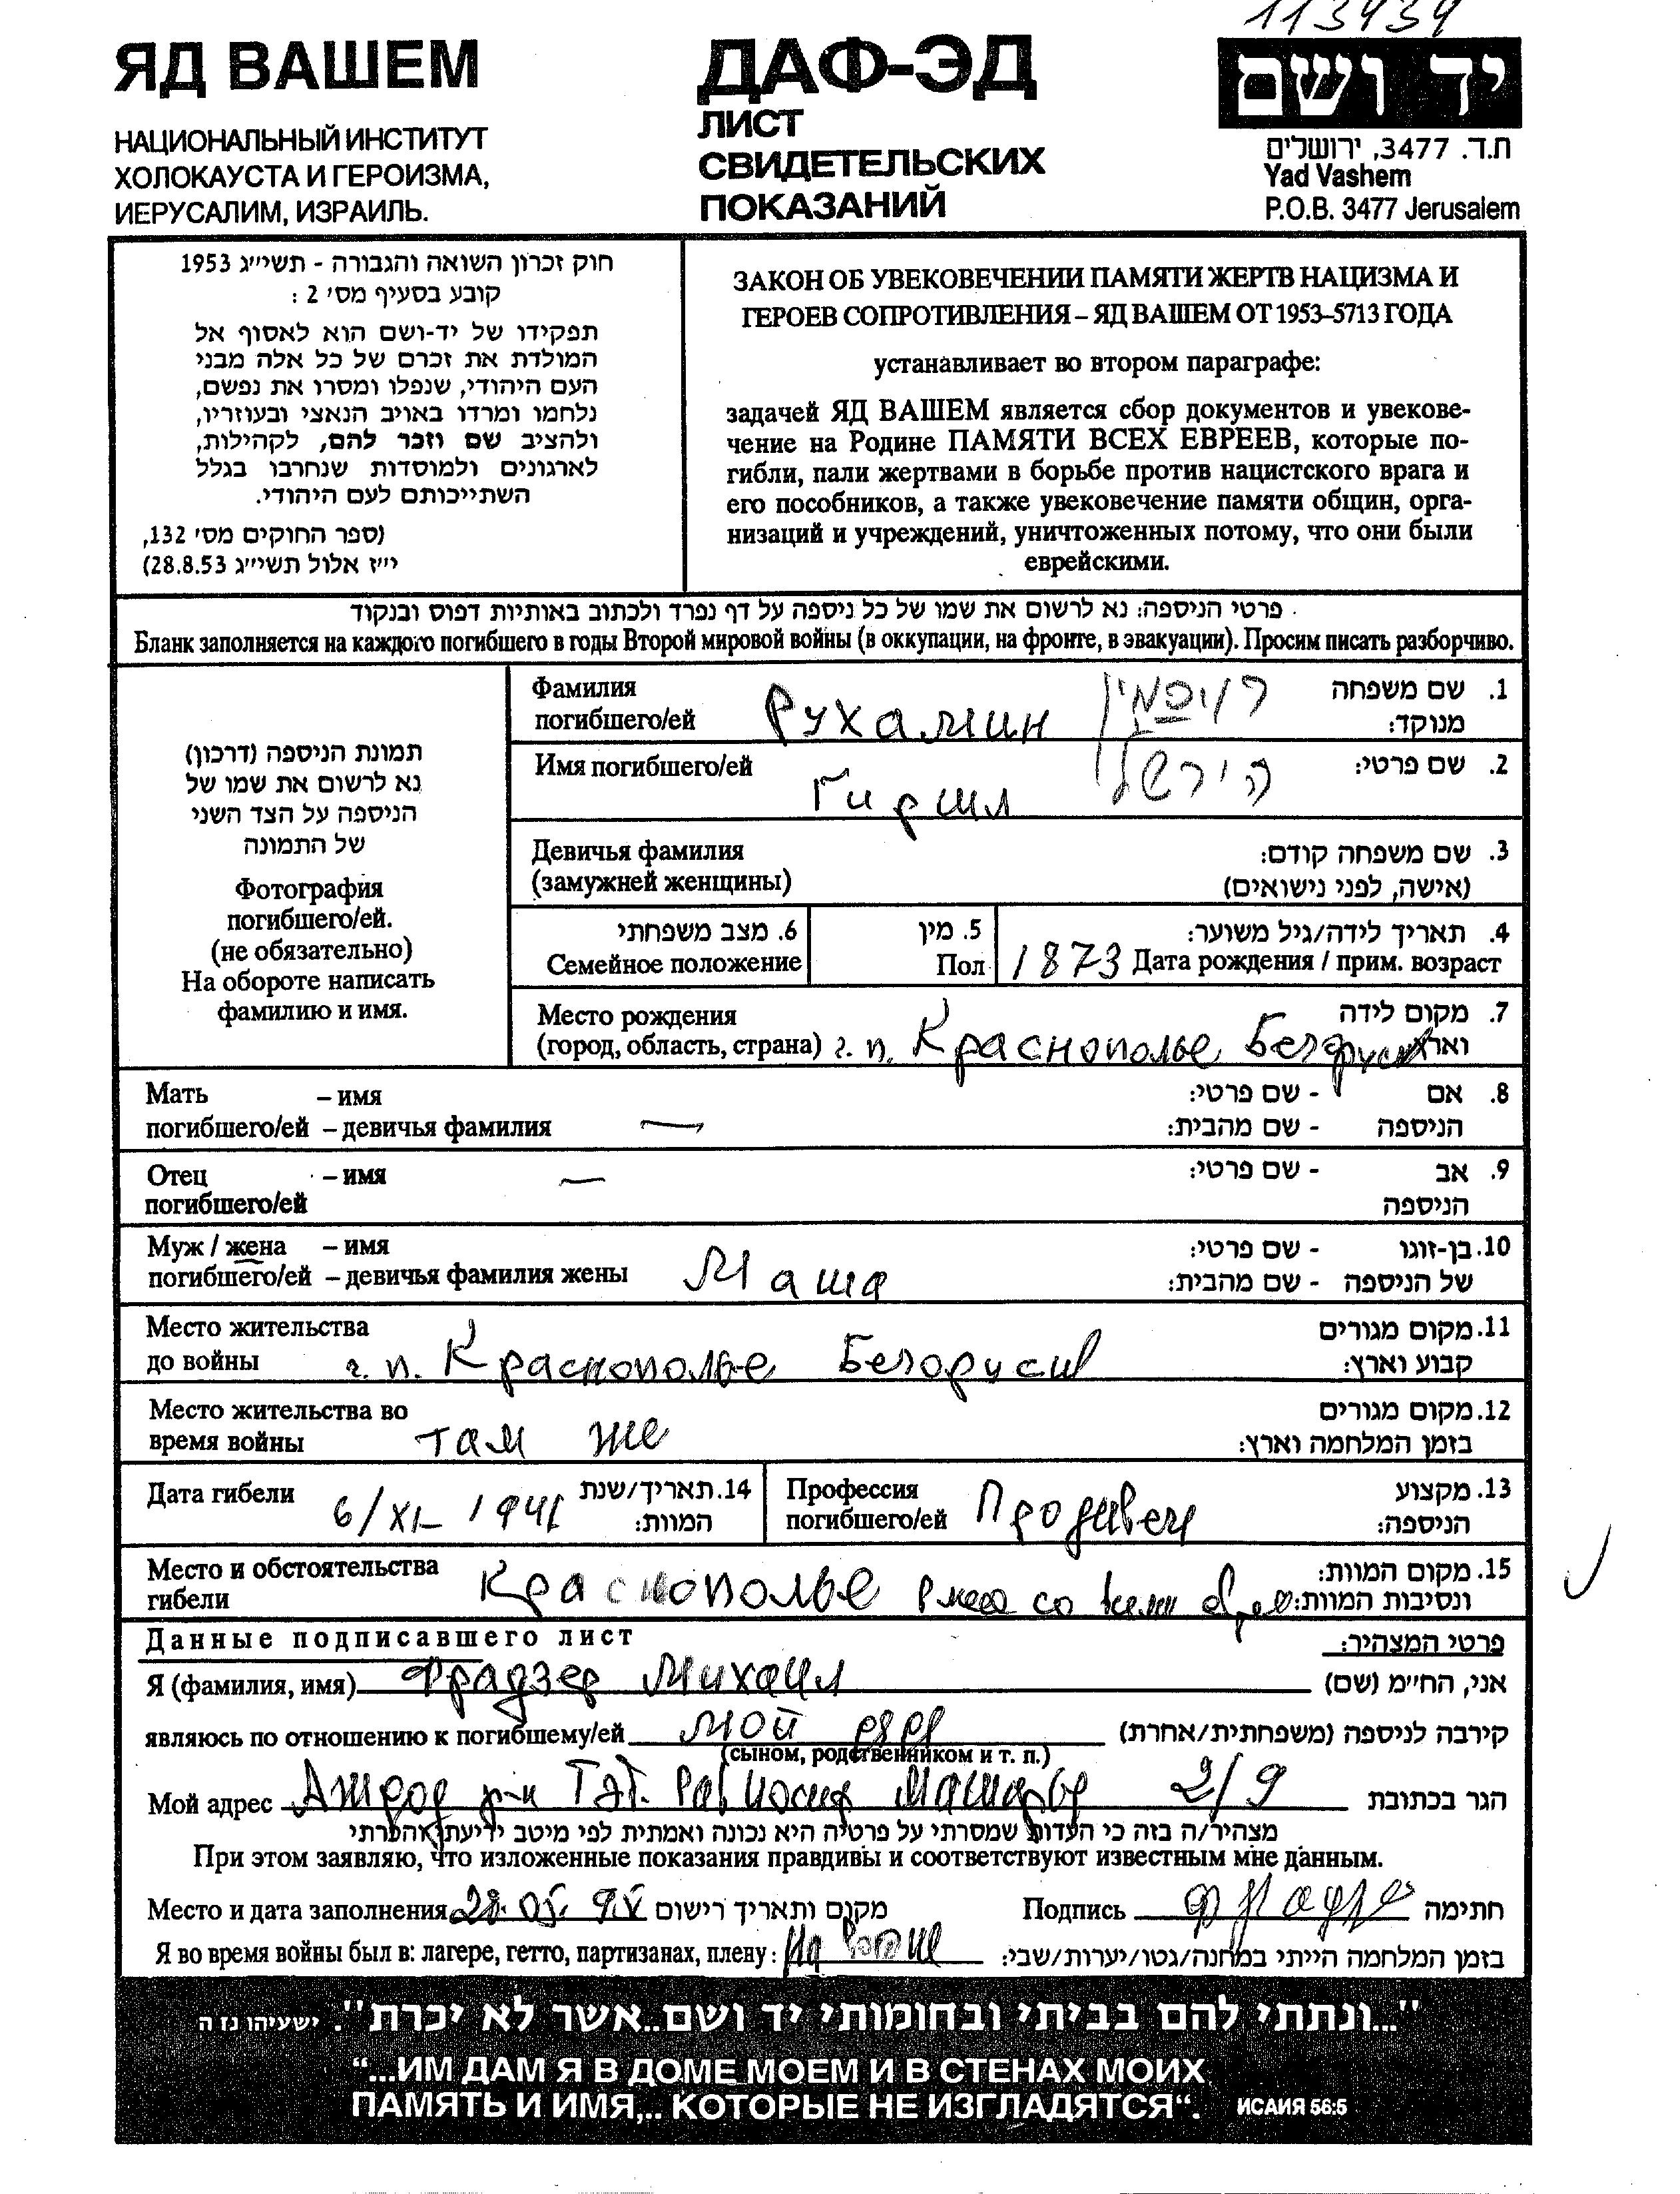 113434
ЯД ВАШЕМ
НАЦИОНАЛЬНЫЙ ИНСТИТУТ
ХОЛОКАУСТА И ГЕРОИЗМА,
ИЕРУСАЛИМ, ИЗРАИЛЬ.
ДАФ-ЭД
ЛИСТ
СВИДЕТЕЛЬСКИХ
ПОКАЗАНИЙ
יד ושם
ת.ד. 3477, ירושלים
Yad Vashem
P.O.B. 3477 Jerusalem
חוק זכרון השואה והגבורה - תשי״ג 1953
קובע בסעיף מס׳ 2 :
תפקידו של יד-ושם הוא לאסוף אל
המולדת את זכרם של כל אלה מבני
העם היהודי, שנפלו ומסרו את נפשם,
נלחמו ומרדו באויב הנאצי ובעוזריו,
ולהציב שם וזכר להם, לקהילות,
לארגונים ולמוסדות שנחרבו בגלל
השתייכותם לעם היהודי.
(ספר החוקים מס׳ 132,
י״ז אלול תשי״ג 28.8.53)
ЗАКОН ОБ УВЕКОВЕЧЕНИИ ПАМЯТИ ЖЕРТВ НАЦИЗМА И
ГЕРОЕВ СОПРОТИВЛЕНИЯ – ЯД ВАШЕМ ОТ 1953–5713 ГОДА
устанавливает во втором параграфе:
задачей ЯД ВАШЕМ является сбор документов и увекове-
чение на Родине ПАМЯТИ ВСЕХ ЕВРЕЕВ, которые по-
гибли, пали жертвами в борьбе против нацистского врага и
его пособников, а также увековечение памяти общин, орга-
низаций и учреждений, уничтоженных потому, что они были
еврейскими.
פרטי הניספה: נא לרשום את שמו של כל ניספה על דף נפרד ולכתוב באותיות דפוס ובנקוד
Бланк заполняется на каждого погибшего в годы Второй мировой войны (в оккупации, на фронте, в эвакуации). Просим писать разборчиво.
תמונת הניספה (דרכון)
נא לרשום את שמו של
הניספה על הצד השני
של התמונה
Фотография
погибшего/ей.
(не обязательно)
На обороте написать
фамилию и имя.
Фамилия
погибшего/ей Рухамин רוחמין
1. שם משפחה
מנוקד:
Имя погибшего/ей Гиршл הירשל 2. שם פרטי:
Девичья фамилия
(замужней женщины)
3. שם משפחה קודם:
(אישה, לפני נישואים)
6. מצב משפחתי
Семейное положение
5. מין
Пол
4. תאריך לידה/גיל משוער:
1873 Дата рождения / прим. возраст
Место рождения
(город, область, страна) г. п. Краснополье Белоруси
7. מקום לידה
וארץ
Мать – имя
погибшего/ей – девичья фамилия —
8. אם - שם פרטי:
הניספה - שם מהבית:
Отец – имя —
погибшего/ей
9. אב - שם פרטי:
הניספה
Муж / жена – имя
погибшего/ей – девичья фамилия жены Маша
10. בן-זוגו - שם פרטי:
של הניספה - שם מהבית:
Место жительства
до войны г. п. Краснополье Белоруси
11. מקום מגורים
קבוע וארץ:
Место жительства во
время войны там же
12. מקום מגורים
בזמן המלחמה וארץ:
Дата гибели 6/XI- 1941
14. תאריך/שנת
המוות:
Профессия
погибшего/ей Продавец
13. מקצוע
הניספה:
Место и обстоятельства
гибели Краснополье со всеми
15. מקום המוות:
ונסיבות המוות:
Данные подписавшего лист פרטי המצהיר:
Я (фамилия, имя) Фрадзер Михаил אני, החי״מ (שם)
являюсь по отношению к погибшему/ей мой дед קירבה לניספה (משפחתית/אחרת)
(сыном, родственником и т. п.)
Мой адрес Ашдод р-н Тэт. 2/9 הגר בכתובת
מצהיר/ה בזה כי העדות שמסרתי על פרטיה היא נכונה ואמתית לפי מיטב ידיעתי והכרתי
При этом заявляю, что изложенные показания правдивы и соответствуют известным мне данным.
Место и дата заполнения 28. 05. 95 מקום ותאריך רישום Подпись חתימה
Я во время войны был в: лагере, гетто, партизанах, плену: בזמן המלחמה הייתי במחנה/גטו/יערות/שבי:
"...ונתתי להם בביתי ובחומותי יד ושם..אשר לא יכרת". ישעיהו נז ה
“...ИМ ДАМ Я В ДОМЕ МОЕМ И В СТЕНАХ МОИХ
ПАМЯТЬ И ИМЯ,.. КОТОРЫЕ НЕ ИЗГЛАДЯТСЯ“. ИСАИЯ 56:5